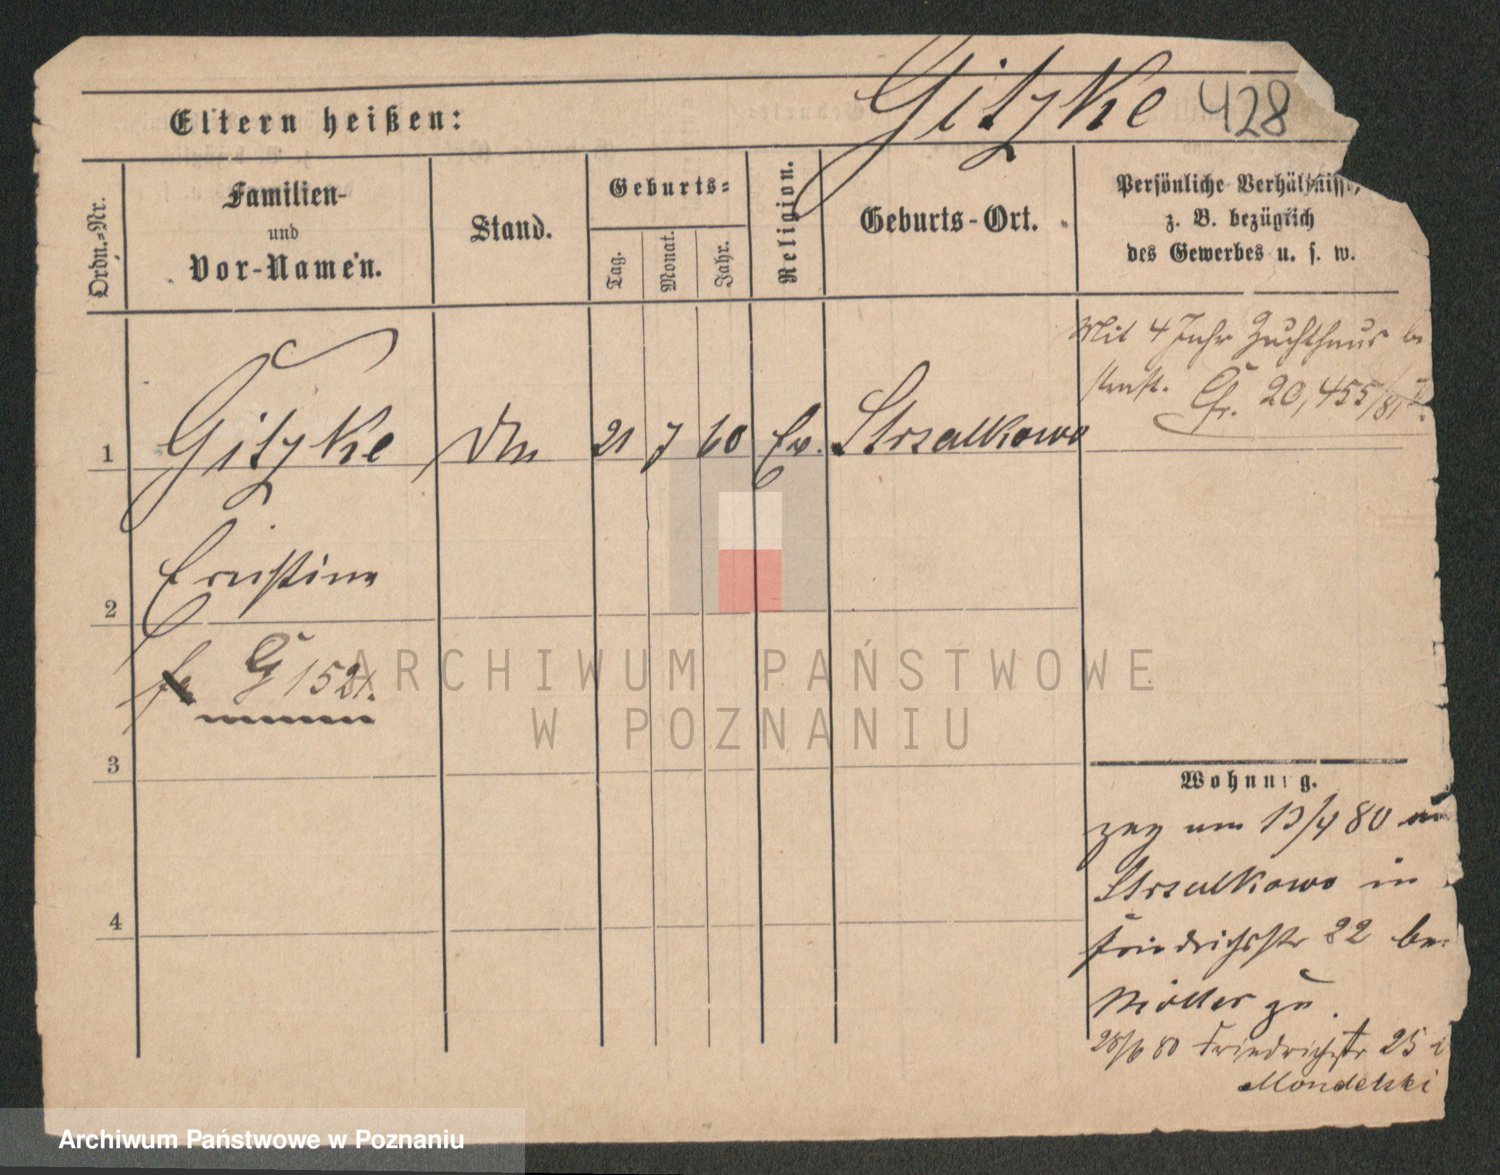 Gitzke 428
Eltern heißen:
Ordn.-Nr.
Familien-
und
Vor-Namen.
Stand.
Geburts-
Tag.
Monat.
Jahr.
Religion.
Geburts-Ort.
Persönliche Verhältnisse,
z. B. bezüglich
des Gewerbes u. s. w.
Mit 4 Jahr Zuchthaus be
straft. Gr. 20,455/81
1 Gitzke 21 7 60 Ev. Strzalkowo
Ernstine
2
G 1521.
3
4
Wohnung.
zog am 13/4 80
Strzalkowo in
Friedrichstr 22 bei
Möller zu.
28/6 80 Friedrichstr 25
Mondelski
ARCHIWUM PAŃSTWOWE
W POZNANIU
Archiwum Państwowe w Poznaniu